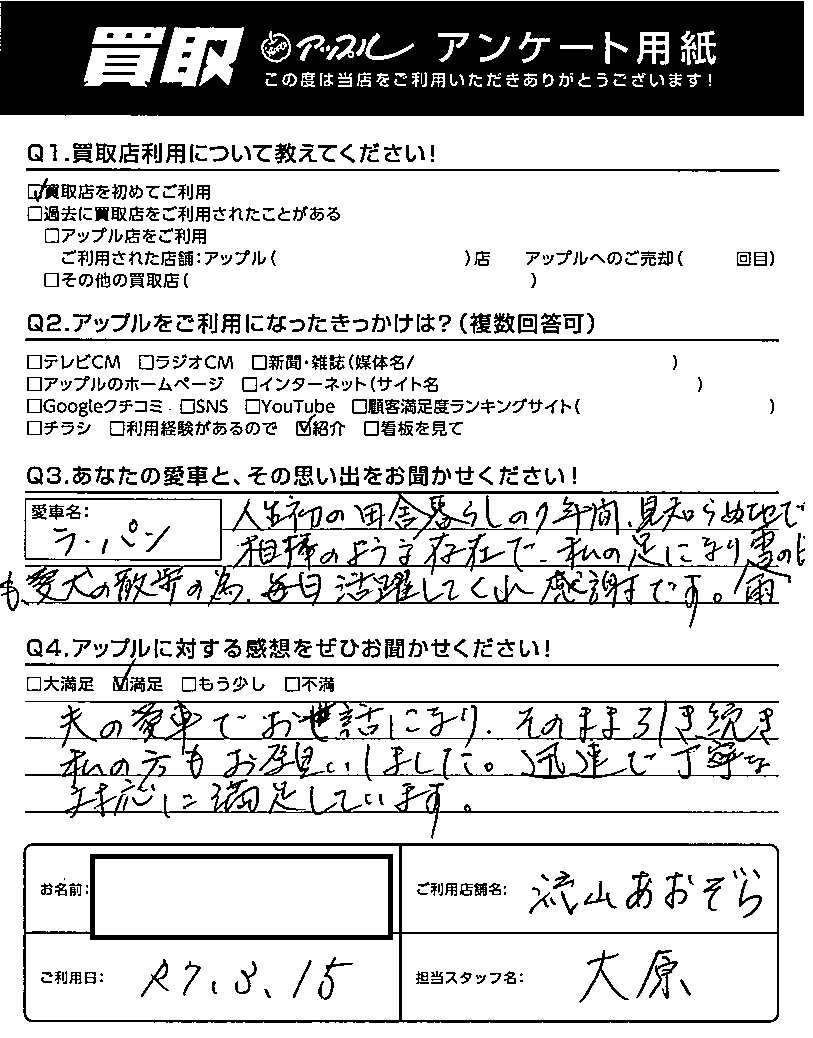 買取 アップル アンケート用紙
この度は当店をご利用いただきありがとうございます!
Q1.買取店利用について教えてください!
☑買取店を初めてご利用
□過去に買取店をご利用されたことがある
□アップル店をご利用
ご利用された店舗:アップル( )店 アップルへのご売却( 回目)
□その他の買取店( )
Q2.アップルをご利用になったきっかけは?(複数回答可)
□テレビCM □ラジオCM □新聞・雑誌(媒体名/ )
□アップルのホームページ □インターネット(サイト名 )
□Googleクチコミ □SNS □YouTube □顧客満足度ランキングサイト( )
□チラシ □利用経験があるので ☑紹介 □看板を見て
Q3.あなたの愛車と、その思い出をお聞かせください!
愛車名:
ラパン
人生初の田舎暮らしの7年間、見知らぬ地で
相棒のような存在で、私の足になり雪の日
も、愛犬の散歩の為、毎日活躍してくれ感謝です。雨
Q4.アップルに対する感想をぜひお聞かせください!
□大満足 ☑満足 □もう少し □不満
夫の愛車でお世話になり、そのまま引き続き
私の方もお願いしました。迅速で丁寧な
対応に満足しています。
お名前:
ご利用店舗名: 流山あおぞら
ご利用日: R7.3.15
担当スタッフ名: 大原